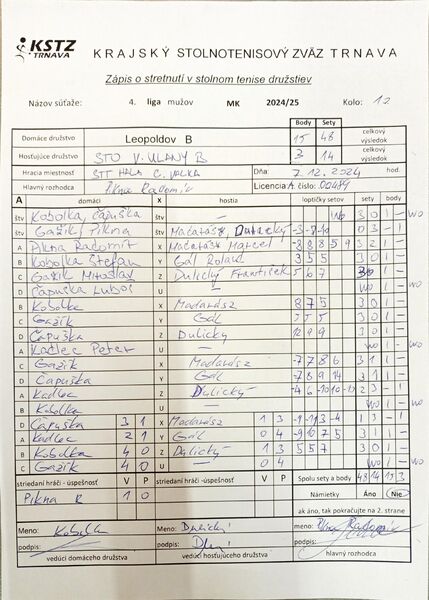 KSTZ
TRNAVA
KRAJSKÝ STOLNOTENISOVÝ ZVÄZ TRNAVA
Zápis o stretnutí v stolnom tenise družstiev
Názov súťaže: 4. liga mužov MK 2024/25 Kolo: 12
Body Sety
Domáce družstvo Leopoldov B 15 48 celkový výsledok
Hosťujúce družstvo STO V. ULANY B 3 14 celkový výsledok
Hracia miestnosť STT HALA C. Dňa: 7.12.2024 hod.
Hlavný rozhodca Pikna Radomír Licencia A číslo: 00489
A domáci X hostia loptičky setov sety body
štv Kobolka, Čapuška — WO 3 0 1 — WO
štv Gažík, Pikna Madarász, Dulický -3 -7 -10 0 3 — 1
A Pikna Radomír X Madarász Marcel 3 2 1 —
B Kobolka Štefan Y Gál Roland 3 5 5 3 0 1 —
C Gažík Miroslav Z Dulický František 5 6 7 3 0 1 —
D Čapuška Ľuboš U — WO 1 — WO
B Kobolka X Madarász 8 7 5 3 0 1 —
C Gažík Y Gál 3 0 1 —
D Čapuška Z Dulický 12 9 9 3 0 1 —
A Kadlec Peter U — WO 1 — WO
C Gažík X Madarász -7 7 8 6 3 1 1 —
D Čapuška Y Gál -7 8 9 14 3 1 1 —
A Kadlec Z Dulický 2 3 — 1
B Kobolka U — WO 1 — WO
D Čapuška 3 1 X Madarász 1 3 1 3 — 1
A Kadlec 2 1 Y Gál 0 4 -9 10 7 5 3 1 1 —
B Kobolka 4 0 Z Dulický 1 3 5 5 7 3 0 1 —
C Gažík 4 0 U — 0 4 WO 1 — WO
striedaní hráči - úspešnosť V P striedaní hráči - úspešnosť V P Spolu sety a body 48 14 15 3
Pikna R 1 0 Námietky Áno Nie
ak áno, tak pokračujte na 2. strane
Meno: Kobolka Meno: Dulický Meno: Pikna Radomír
podpis: podpis: podpis:
vedúci domáceho družstva vedúci hosťujúceho družstva hlavný rozhodca